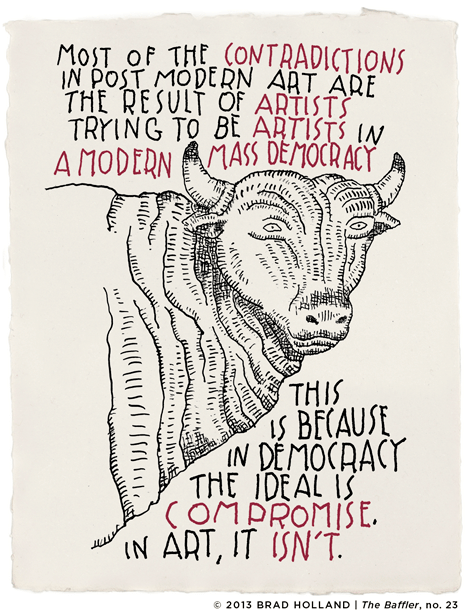 MOST OF THE CONTRADICTIONS
IN POST MODERN ART ARE
THE RESULT OF ARTISTS
TRYING TO BE ARTISTS IN
A MODERN MASS DEMOCRACY
THIS
IS BECAUSE
IN DEMOCRACY
THE IDEAL IS
COMPROMISE.
IN ART, IT ISN'T.
© 2013 BRAD HOLLAND | The Baffler, no. 23